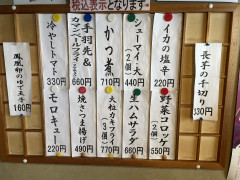 税込表示となります。
長芋の千切り
330円
イカの塩辛
220円
野菜コロッケ
(2個)
550円
シューマイ・大
(2個)
440円
生ハムサラダ
680円
かつ煮
710円
大粒カキフライ
(3個)
770円
手羽先&
カマンベールフライ
660円
焼さつま揚げ
490円
冷やしトマト
330円
モロキュー
220円
鳳凰卵のゆで玉子
160円